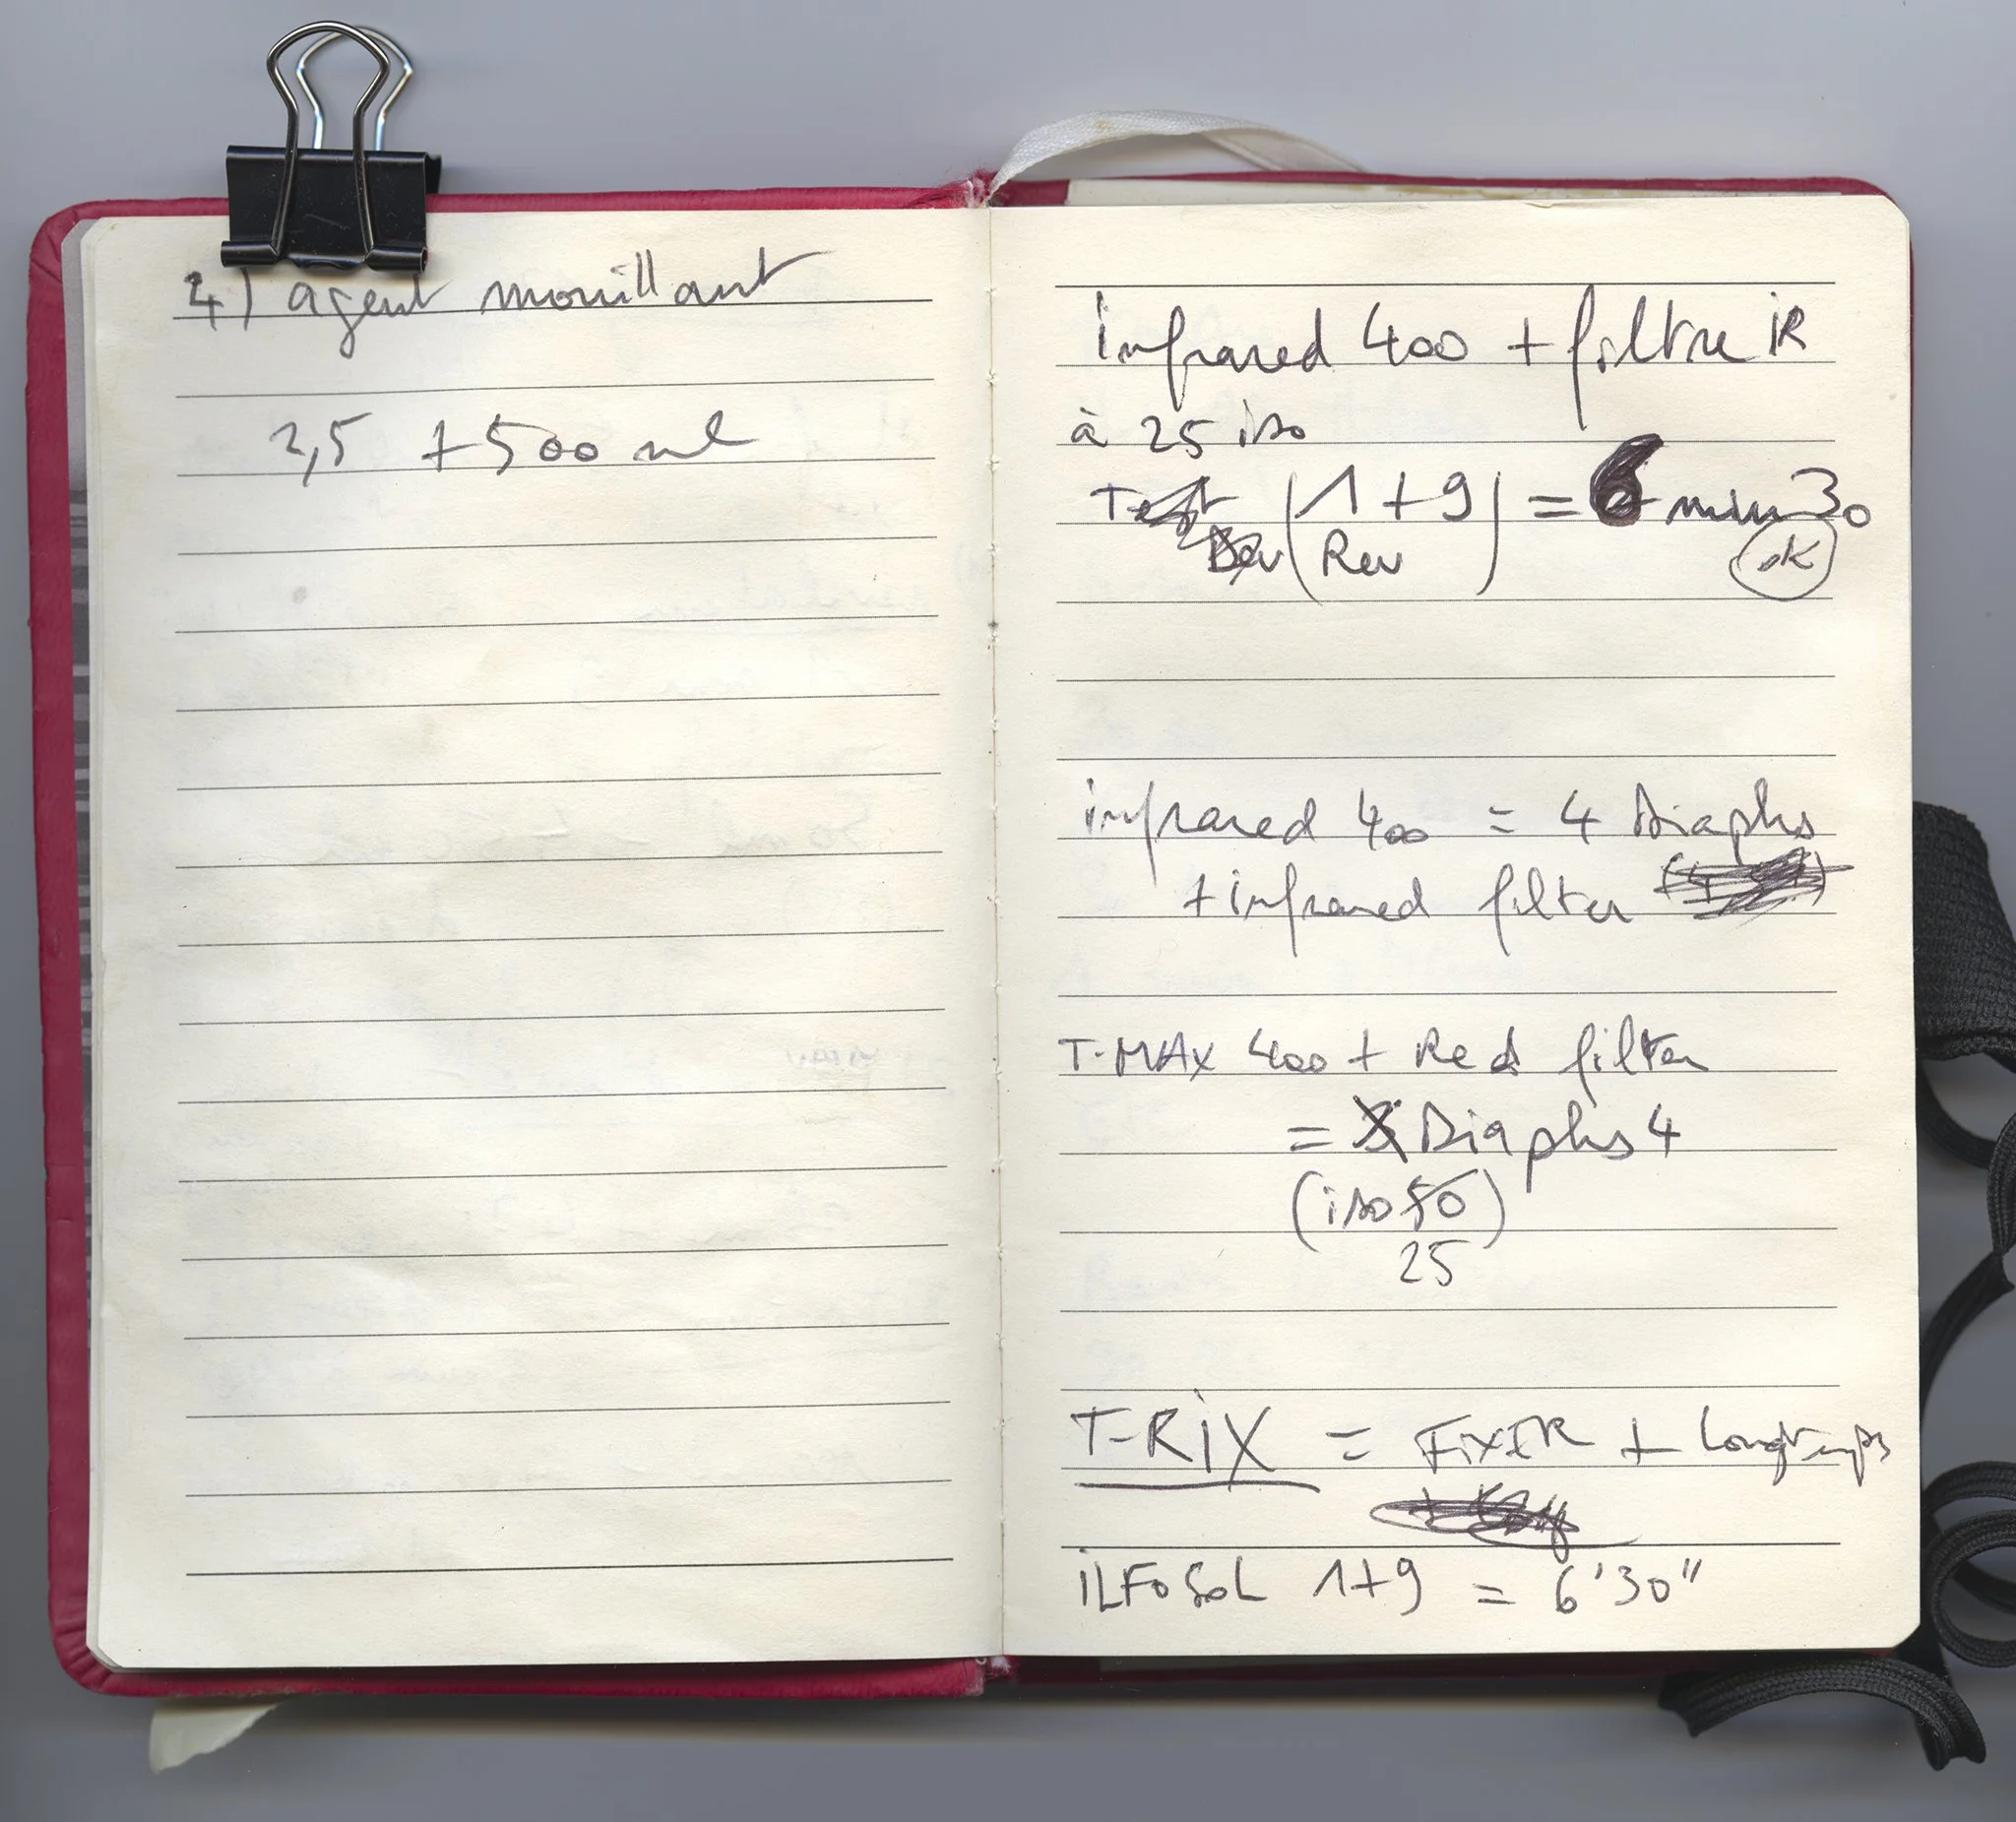 4) agent mouillant
2,5 + 500 ml
infrared 400 + filtre iR
à 25 iso
Test (1+9) = 6 min 30
Dev (Rev) ok
infrared 400 = 4 Diaphs
+ infrared filter
T-MAX 400 + Red filter
= 3 Diaphs 4
(iso 50)
25
T-RiX = FixER + Longtemps
iLFoSoL 1+9 = 6'30"